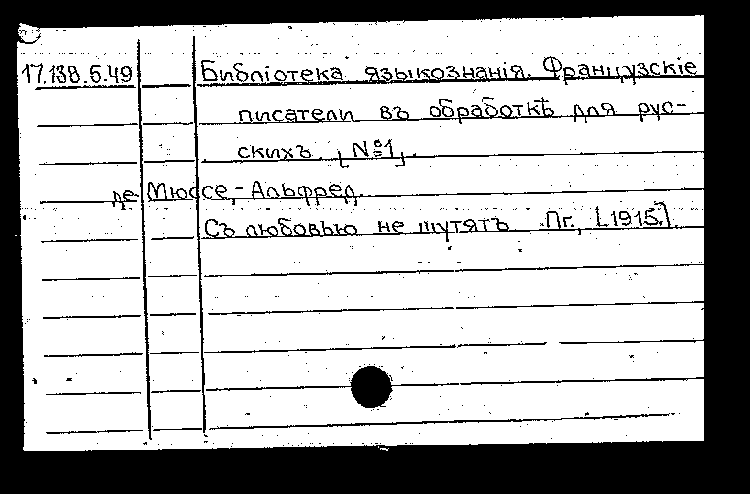 17.138.5.49 Библіотека языкознанія. Французскіе
писатели въ обработкѣ для рус-
скихъ. [№1].
де Мюссе, - Альфред.
Съ любовью не шутятъ Пг., [1915.]